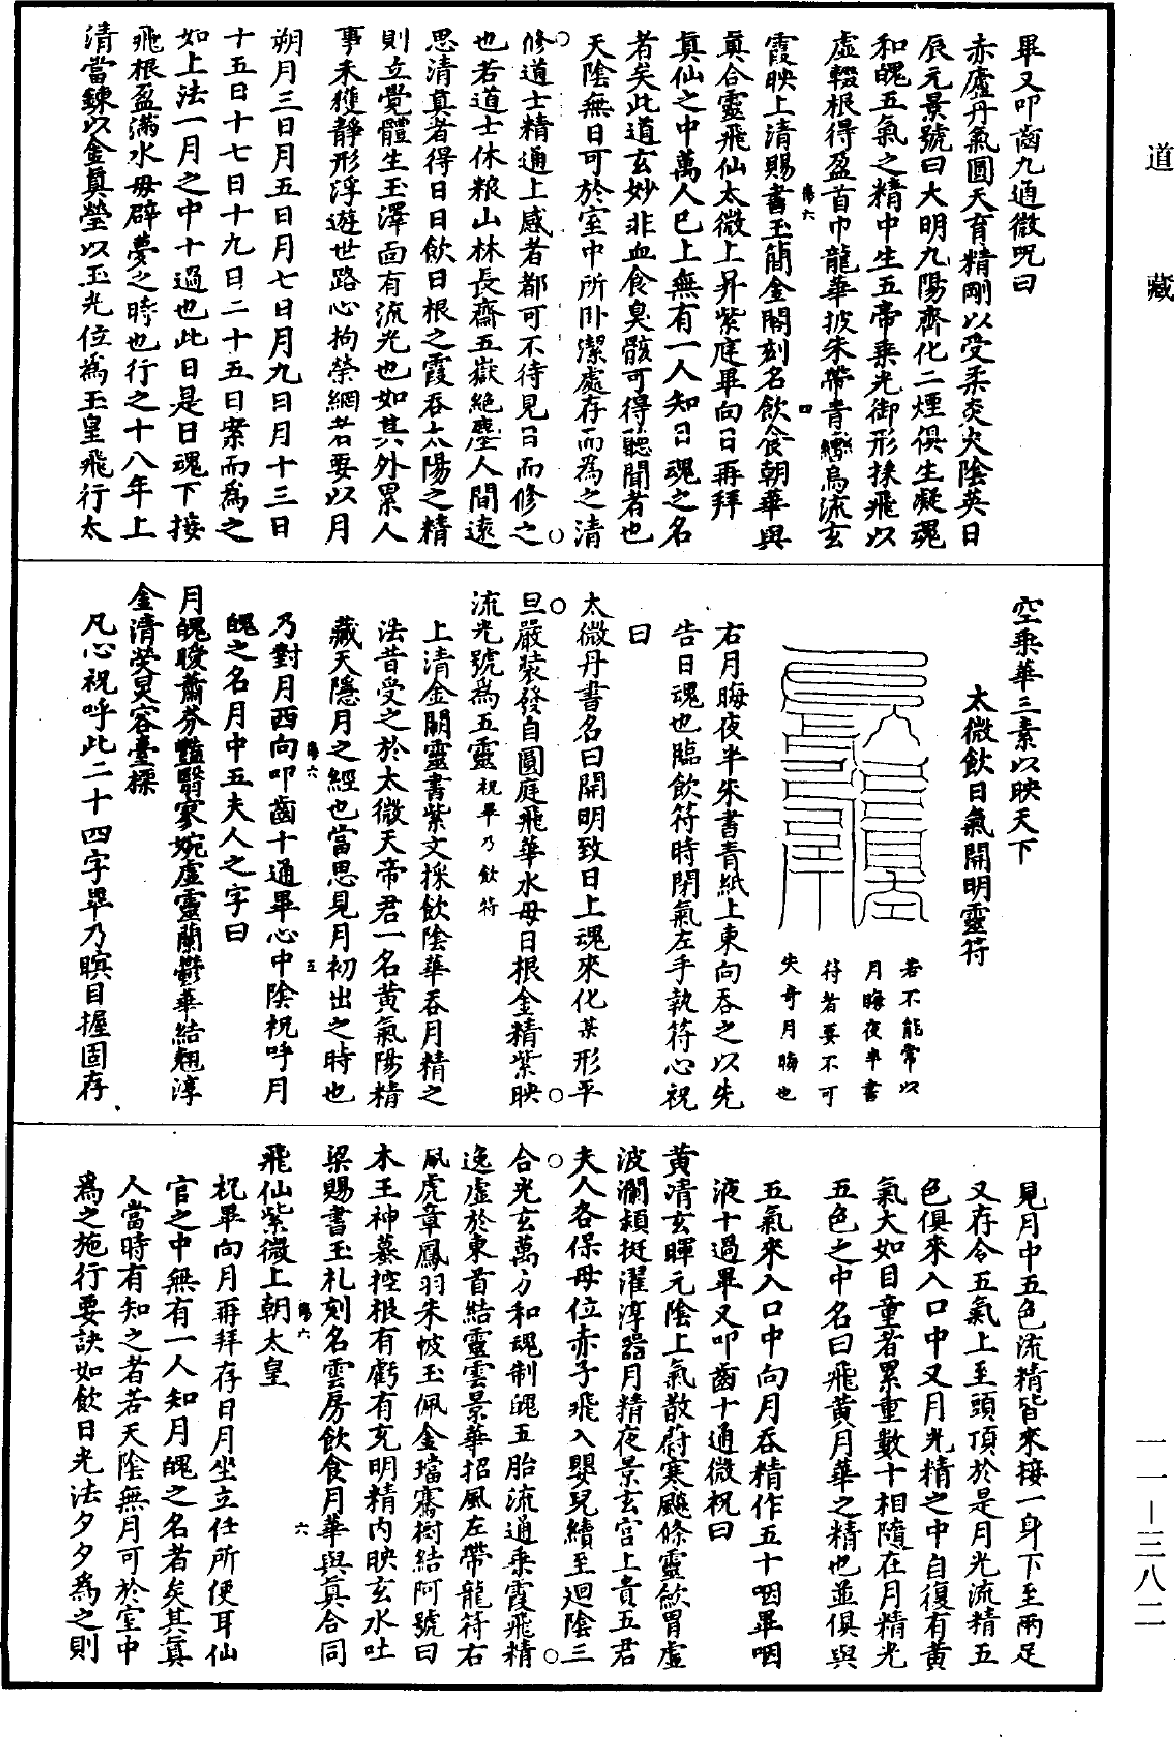 道藏
畢又叩齒九通微呪曰
赤廬丹氣圓天育精剛以受柔炎火陰英日
辰元景號曰大明九陽齊化二煙俱生凝魂
和魄五氣之精中生五帝乘光御形採飛以
虛輟根得盈首巾龍華披朱帶青轡烏流玄
霞映上清賜書玉簡金閣刻名飲食朝華與
真合靈飛仙太微上昇紫庭畢向日再拜
真仙之中萬人已上無有一人知日魂之名
者矣此道玄妙非血食臭骸可得聽聞者也
天陰無日可於室中所卧潔處存而為之清
修道士精通上感者都可不待見日而修之
也若道士休粮山林長齋五嶽絕塵人間遠
思清真者得日日飲日根之霞吞太陽之精
則立覺體生玉澤面有流光也如其外累人
事未獲靜形浮遊世路心拘榮網者要以月
朔月三日月五日月七日月九日月十三日
十五日十七日十九日二十五日案而為之
如上法一月之中十過也此日是日魂下接
飛根盈滿水母辟夢之時也行之十八年上
清當鍊以金真瑩以玉光位為玉皇飛行太
空乘華三素以映天下
太微飲日氣開明靈符
若不能常以
月晦夜半書
符者要不可
失奇月晦也
右月晦夜半朱書青紙上東向吞之以先
告日魂也臨飲符時閉氣左手執符心祝
曰
太微丹書名曰開明致日上魂來化某形平
旦嚴裝發自圓庭飛華水母日根金精紫映
流光號為五靈祝畢乃飲符
上清金闕靈書紫文採飲陰華吞月精之
法昔受之於太微天帝君一名黃氣陽精
藏天隱月之經也當思見月初出之時也
乃對月西向叩齒十通畢心中陰祝呼月
魄之名月中五夫人之字曰
月魄曖蕭芬豔翳寥婉虛靈蘭鬱華結翹淳
金清瑩炅容臺標
凡心祝呼此二十四字畢乃瞑目握固存
見月中五色流精皆來接一身下至兩足
又存令五氣上至頭頂於是月光流精五
色俱來入口中又月光精之中自復有黃
氣大如目童者累重數十相隨在月精光
五色之中名曰飛黃月華之精也並俱與
五氣來入口中向月吞精作五十咽畢咽
液十過畢又叩齒十通微祝曰
黃清玄暉元陰上氣散蔚寒飈條靈斂胃虛
波瀾穎挺濯淳器月精夜景玄宮上貴五君
夫人各保母位赤子飛入嬰兒續至迴陰三
合光玄萬方和魂制魄五胎流通乘霞飛精
逸虛於東首結靈雲景華招風左帶龍符右
佩虎章鳳羽朱帔玉佩金璫騫樹結阿號曰
木王神蟇控根有虧有充明精內映玄水吐
梁賜書玉札刻名雲房飲食月華與真合同
飛仙紫微上朝太皇
祝畢向月再拜存日月坐立任所便耳仙
官之中無有一人知月魄之名者矣其真
人當時有知之者若天陰無月可於室中
為之施行要訣如飲日光法夕夕為之則
一一－三八二